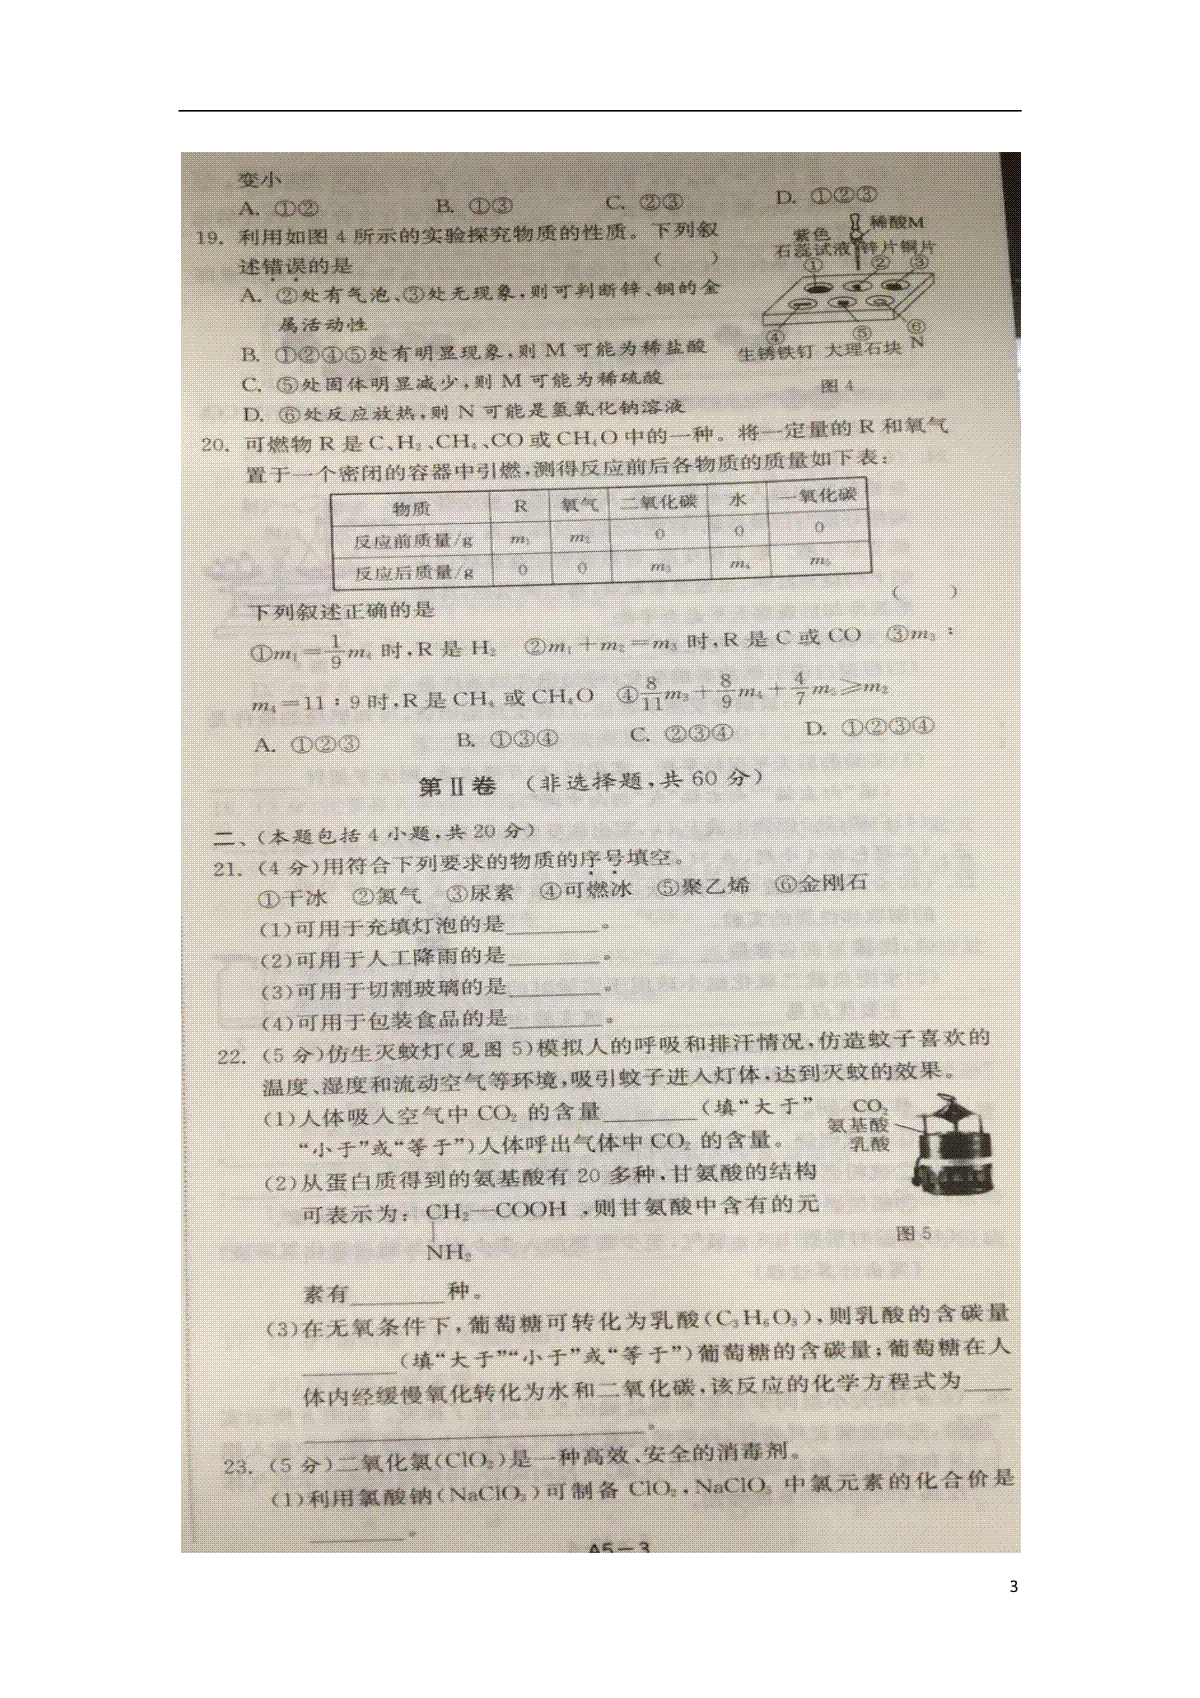 变小
A. ①② B. ①③ C. ②③ D. ①②③
19. 利用如图 4 所示的实验探究物质的性质。下列叙
述错误的是 ( )
A. ②处有气泡、③处无现象,则可判断锌、铜的金
属活动性
B. ①②④⑤处有明显现象,则 M 可能为稀盐酸
C. ⑤处固体明显减少,则 M 可能为稀硫酸
D. ⑥处反应放热,则 N 可能是氢氧化钠溶液
稀酸M
紫色
石蕊试液 锌片 铜片
① ② ③
④ ⑤ ⑥
生锈铁钉 大理石块 N
图 4
20. 可燃物 R 是 C、H₂、CH₄、CO 或 CH₄O 中的一种。将一定量的 R 和氧气
置于一个密闭的容器中引燃,测得反应前后各物质的质量如下表:
物质 R 氧气 二氧化碳 水 一氧化碳
反应前质量/g m₁ m₂ 0 0 0
反应后质量/g 0 0 m₃ m₄ m₅
下列叙述正确的是 ( )
①m₁=1/9m₄ 时,R 是 H₂ ②m₁+m₂=m₃ 时,R 是 C 或 CO ③m₃:
m₄=11:9 时,R 是 CH₄ 或 CH₄O ④8/11m₃+8/9m₄+4/7m₅≥m₂
A. ①②③ B. ①③④ C. ②③④ D. ①②③④
第Ⅱ卷 (非选择题,共 60 分)
二、(本题包括 4 小题,共 20 分)
21. (4 分)用符合下列要求的物质的序号填空。
①干冰 ②氮气 ③尿素 ④可燃冰 ⑤聚乙烯 ⑥金刚石
(1)可用于充填灯泡的是________。
(2)可用于人工降雨的是________。
(3)可用于切割玻璃的是________。
(4)可用于包装食品的是________。
22. (5 分)仿生灭蚊灯(见图 5)模拟人的呼吸和排汗情况,仿造蚊子喜欢的
温度、湿度和流动空气等环境,吸引蚊子进入灯体,达到灭蚊的效果。
(1)人体吸入空气中 CO₂ 的含量________(填“大于”
“小于”或“等于”)人体呼出气体中 CO₂ 的含量。
(2)从蛋白质得到的氨基酸有 20 多种,甘氨酸的结构
可表示为: CH₂—COOH ,则甘氨酸中含有的元
NH₂
素有________种。
CO₂
氨基酸
乳酸
图 5
(3)在无氧条件下,葡萄糖可转化为乳酸(C₃H₆O₃),则乳酸的含碳量
________(填“大于”“小于”或“等于”)葡萄糖的含碳量;葡萄糖在人
体内经缓慢氧化转化为水和二氧化碳,该反应的化学方程式为____
________________________。
23. (5 分)二氧化氯(ClO₂)是一种高效、安全的消毒剂。
(1)利用氯酸钠(NaClO₃)可制备 ClO₂,NaClO₃ 中氯元素的化合价是
________。
A5-3
3